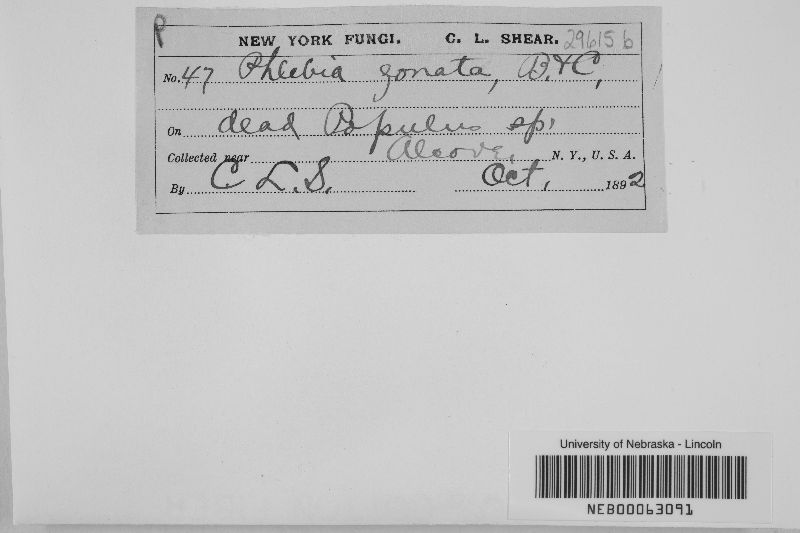 P
NEW YORK FUNGI. C. L. SHEAR. 29615 b
No. 47 Phlebia zonata, B.&C,
On dead Populus sp.
Collected near Alcove, N. Y., U. S. A.
By C L. S. Oct, 1892
University of Nebraska - Lincoln
NEB00063091